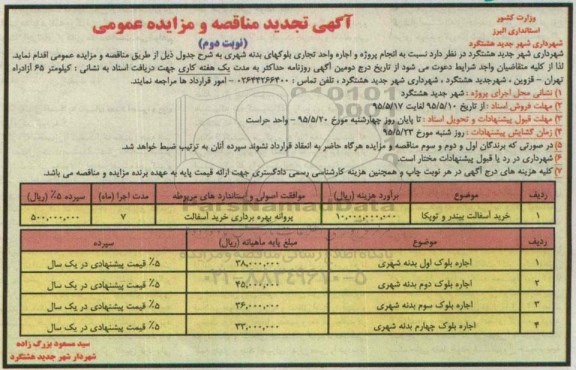 وزارت کشور
استانداری البرز
شهرداری شهر جدید هشتگرد
آگهی تجدید مناقصه و مزایده عمومی
(نوبت دوم)
شهرداری شهر جدید هشتگرد در نظر دارد نسبت به انجام پروژه و اجاره واحد تجاری بلوکهای بدنه شهری به شرح جدول ذیل از طریق مناقصه و مزایده عمومی اقدام نماید.
لذا از کلیه متقاضیان واجد شرایط دعوت می شود از تاریخ درج دومین آگهی روزنامه حداکثر به مدت یک هفته کاری جهت دریافت اسناد به نشانی : کیلومتر ۶۵ آزادراه
تهران – قزوین ، شهرجدید هشتگرد ، شهرداری شهر جدید هشتگرد ، تلفن تماس : ۰۲۶۴۴۲۶۶۴۰۰ – امور قرارداد ها مراجعه نمایند.
۱) نشانی محل اجرای پروژه : شهر جدید هشتگرد
۲) مهلت فروش اسناد : از تاریخ ۹۵/۵/۱۰ لغایت ۹۵/۵/۱۷
۳) مهلت قبول پیشنهادات و تحویل اسناد : تا پایان روز چهارشنبه مورخ ۹۵/۵/۲۰ – واحد حراست
۴) زمان گشایش پیشنهادات : روز شنبه مورخ ۹۵/۵/۲۳
۵) در صورتی که برندگان اول و دوم و سوم مناقصه و مزایده هرگاه حاضر به انعقاد قرارداد نشوند سپرده آنان به ترتیب ضبط خواهد شد.
۶) شهرداری در رد یا قبول پیشنهادات مختار است.
۷) کلیه هزینه های درج آگهی در هر نوبت چاپ و همچنین هزینه کارشناسی رسمی دادگستری جهت ارائه قیمت پایه به عهده برنده مزایده و مناقصه می باشد.
ردیف موضوع برآورد هزینه (ریال) موافقت اصولی و استاندارد های مربوطه مدت اجرا (ماه) سپرده ۵٪ (ریال)
۱ خرید آسفالت بیندر و توپکا ۱۰,۰۰۰,۰۰۰,۰۰۰ پروانه بهره برداری خرید آسفالت ۷ ۵۰۰,۰۰۰,۰۰۰
ردیف موضوع مبلغ پایه ماهیانه (ریال) سپرده
۱ اجاره بلوک اول بدنه شهری ۳۸,۰۰۰,۰۰۰ ۵٪ قیمت پیشنهادی در یک سال
۲ اجاره بلوک دوم بدنه شهری ۴۵,۰۰۰,۰۰۰ ۵٪ قیمت پیشنهادی در یک سال
۳ اجاره بلوک سوم بدنه شهری ۳۶,۰۰۰,۰۰۰ ۵٪ قیمت پیشنهادی در یک سال
۴ اجاره بلوک چهارم بدنه شهری ۳۳,۰۰۰,۰۰۰ ۵٪ قیمت پیشنهادی در یک سال
سید مسعود بزرگ زاده
شهردار شهر جدید هشتگرد
ParsNamadData
پایگاه اطلاع رسانی مناقصه و مزایده
۰۲۱-۸۸۳۴۹۶۷۰-۵